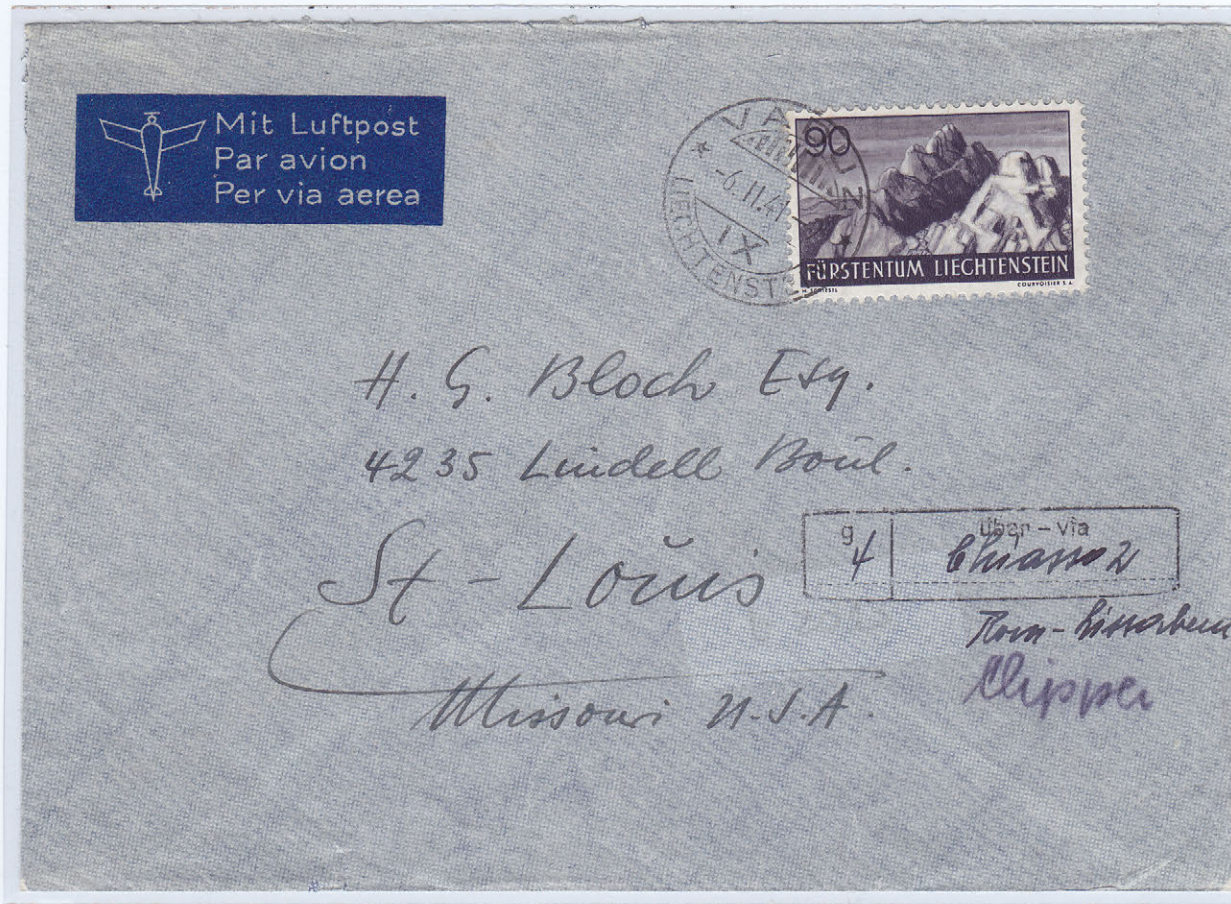 Mit Luftpost
Par avion
Per via aerea
VADUZ
-6.II.41
IX
LIECHTENSTEIN
90
FÜRSTENTUM LIECHTENSTEIN
COURVOISIER S.A.
H. G. Bloch Esq.
4235 Lindell Boul.
St - Louis
Missouri U.S.A.
g
4
über - via
Chiasso 2
Rom - Lissabon
Clipper